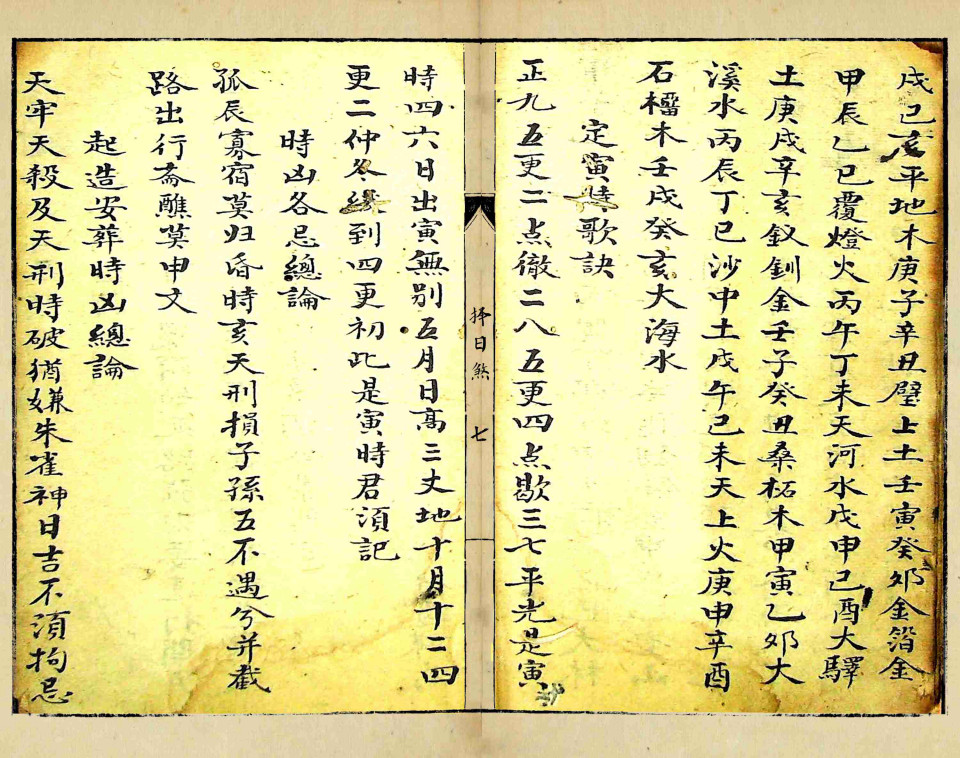 戌己亥平地木庚子辛丑壁上土壬寅癸卯金箔金
甲辰乙巳覆燈火丙午丁未天河水戊申己酉大驛
土庚戌辛亥釵釧金壬子癸丑桑柘木甲寅乙卯大
溪水丙辰丁巳沙中土戊午己未天上火庚申辛酉
石橊木壬戌癸亥大海水
定寅時歌訣
正九五更二点徹二八五更四点歇三七平光是寅
時四六日出寅無别五月日高三丈地十月十二四
更二仲冬到四更初此是寅時君須記
時凶各忌總論
孤辰寡宿莫归昏時亥天刑損子孫五不遇兮并截
路出行斋醮莫申文
起造安葬時凶總論
天牢天殺及天刑時破猶嫌朱雀神日吉不須拘忌
择日煞
七